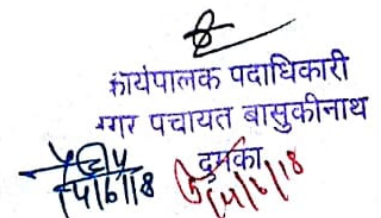 कार्यपालक पदाधिकारी
नगर पचायत बासुकीनाथ
दुमका
14/6/18 14/6/18